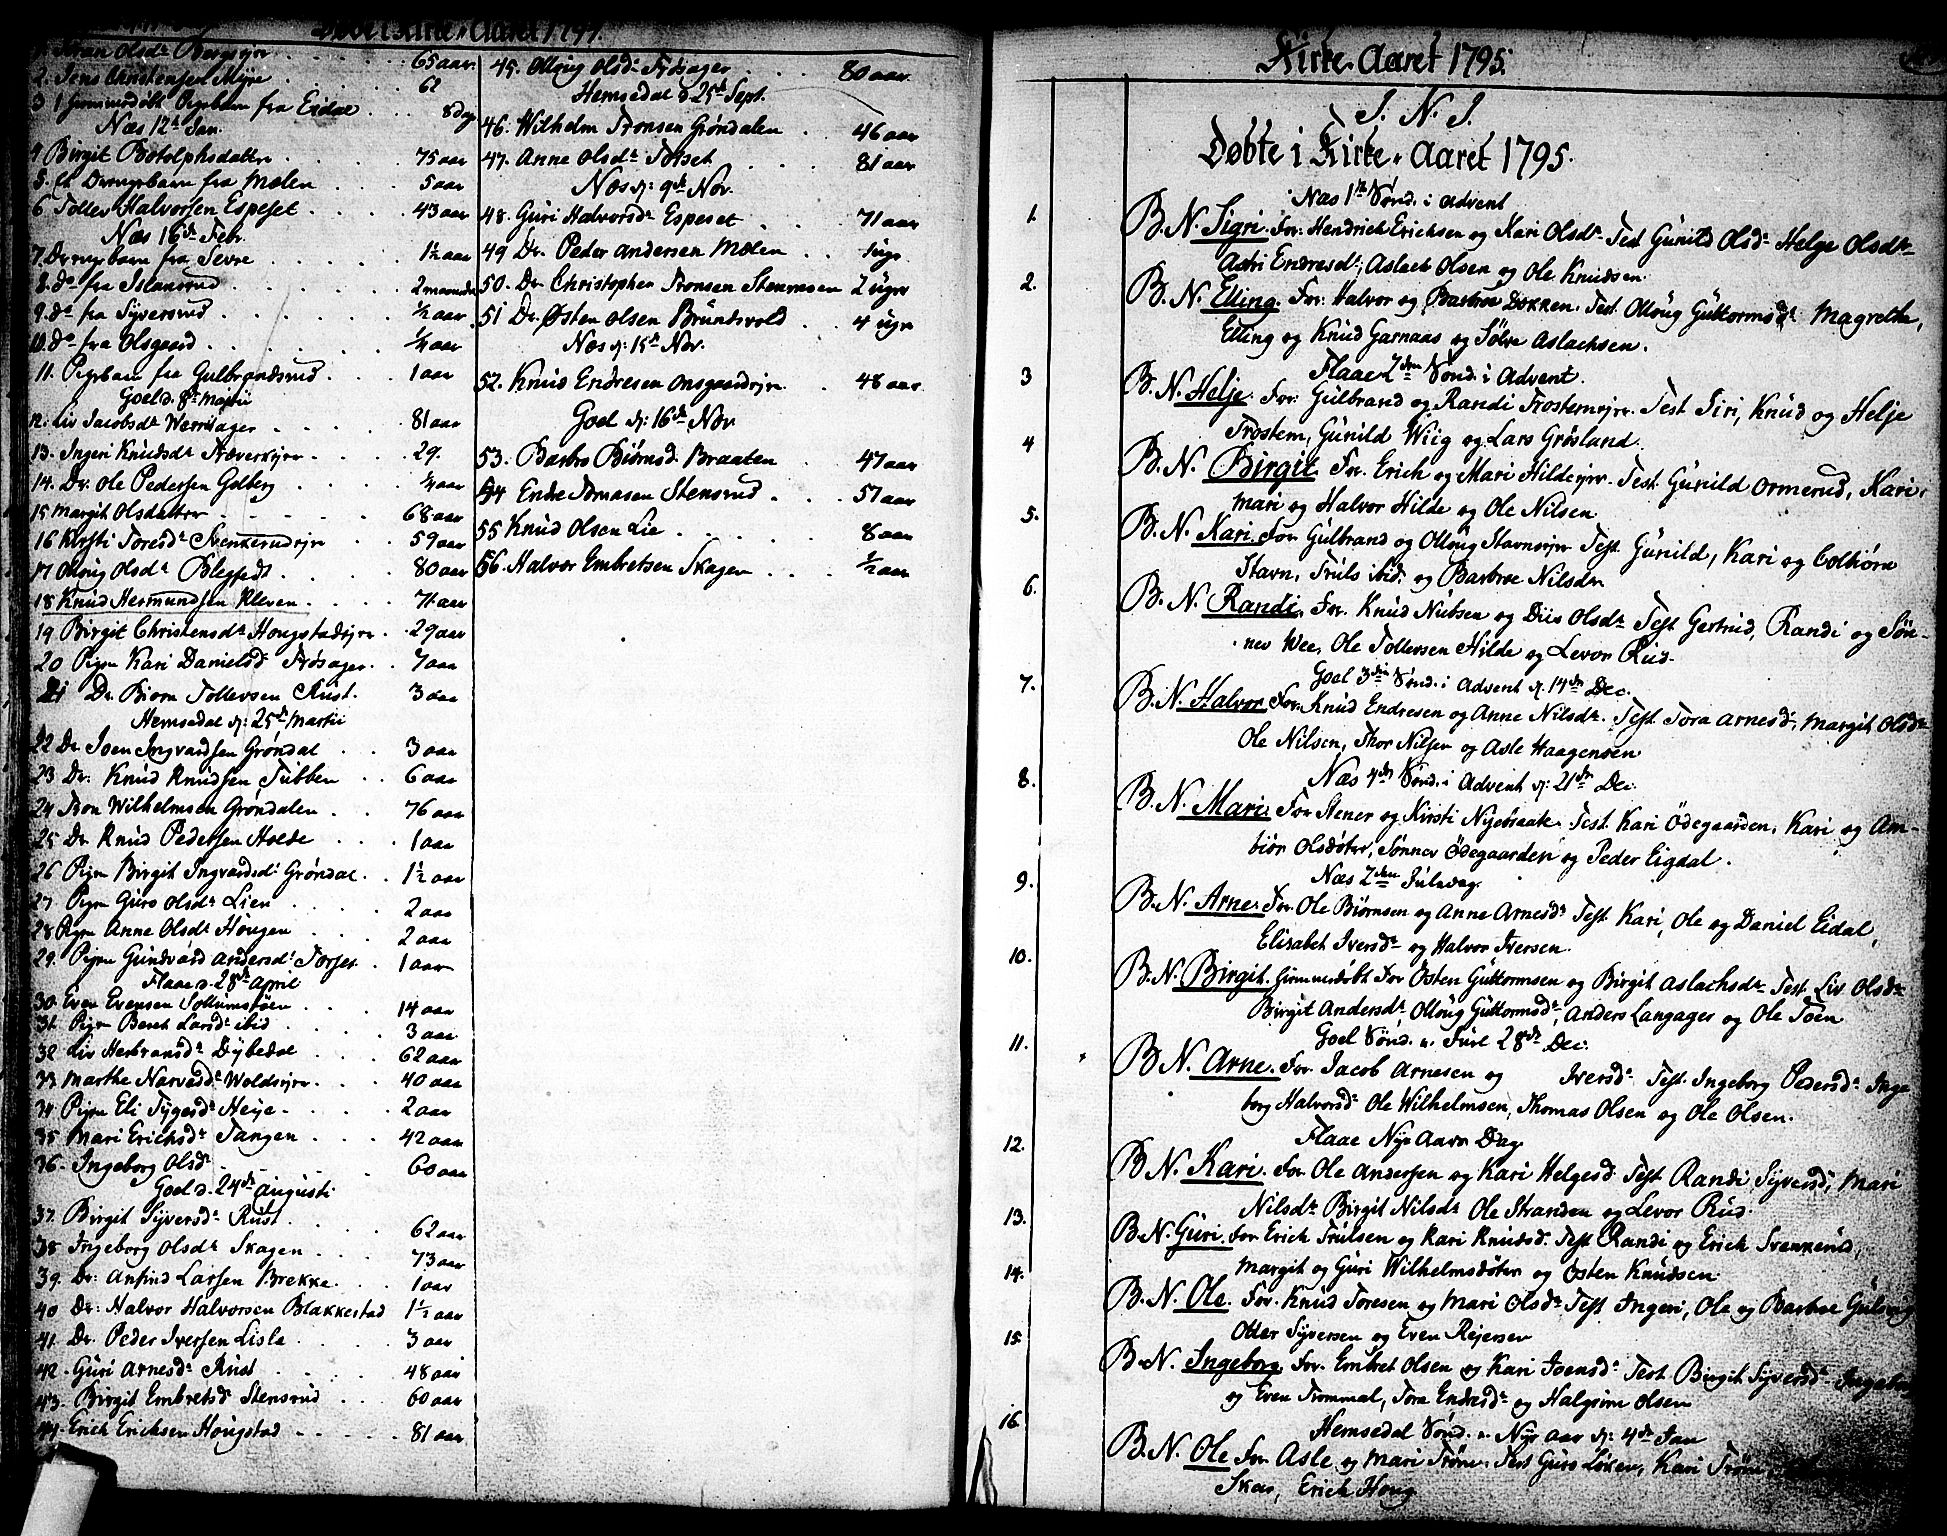 Døde i Kirke-Aaret 1794.
Olsdr Bergsejer . . . 65 aar
2. Jens Christensen Myre . . 62
3 1 hjemmedøbt Pigebarn fra Eidal . . . 8 dage
Næs 12te Jan.
4 Birgit Botolphsdatter . . . . 75 aar
5. et Drengebarn fra Mølen . . . 5 aar
6 Tollev Halvorsen Espeset . . . . 43 aar
Næs 16de Febr.
7. Drengebarn fra Sevre . . . . 1½ aar
8. do fra Islansrud . . . . 2 maaneder
9. do fra Syversrud . . . . ½ aar
10. do fra Olsgaard . . . . ¼ aar
11. Pigebarn fra Gulbrandsrud . . . 1 aar
Goel d. 8de Martii
12. Liv Jacobsdr Werrisager . . . 81 aar
13. Ingeri Knudsdr Næversejer . . . 29.
14. Dr. Ole Pedersen Golberg . . . ¼ aar
15 Margit Olsdatter . . . . 68 aar
16 Kirsti Toresdr Svenkerudejer . . 59 aar
17 Olloug Olsdr Blegeedt . . . . 80 aar
18 Knud Hermundsen Kleven . . . . 71 aar
19 Birgit Christensdr Hougstadejer . . 29 aar
20 Pigen Kari Danielsd Frøsager . . 7 aar
21 Dr. Biørn Tollevsen Rust . . 3 aar
Hemsedal d: 25de Martii
22 Dr. Joen Ingvardsen Grøndal . . 3 aar
23 Dr. Knud Knudsen Tubben . . 6 aar
24 Tron Wilhelmsen Grøndalen . . 76 aar
25 Dr Knud Pedersen Holde . . . 1 aar
26 Pigen Birgit Ingvardsdr Grøndal . . 1½ aar
27 Pigen Guro Olsdr Lien . . . 2 aar
28 Pigen Anne Olsdr Hougen . . . 2 aar
29. Pigen Gundvard Andersdr Torset . 1 aar
Flaae d. 28de April
30 Even Evensen Sollumsløen . . . 14 aar
31. Pigen Beret Larsdr ibid . . . 3 aar
32 Liv Herbransdr Dybedal . . . 62 aar
33 Marthe Narvesdr Woldsejer . . . 40 aar
34 Pigen Eli Tygesdr Heije . . . . 2 aar
35 Mari Erichsdr Tangen . . . 42 aar
36. Ingeborg Olsdr . . . . 60 aar
Goel d. 24de Augusti
37. Birgit Syversdr Rust . . . 62 aar
38 Ingeborg Olsdr Skagen . . . 73 aar
39. Dr: Anfind Larsen Brekke . . . 1 aar
40 Dr: Halvor Halvorsen Blakkestad 1½ aar
41. Dr. Peder Iversen Lisle . . . 3 aar
42. Guri Arnesdr Rust . . . . 48 aar
43. Birgit Embretsdr Stensrud . . . 60 aar
44. Erich Erichsen Hougstad . . . . 81 aar
45. Olloug Olsdr Frøsager . . . 80 aar.
Hemsedal d 25de Sept.
46. Wilhelm Tronsen Grøndalen . . 46 aar
47. Anne Olsdr Torset . . . 81 aar
Næs d: 9de Nov.
48. Guri Halvorsdr Espeset . . 71 aar
49 Dr. Peder Andersen Mølen . . 1 uge
50. Dr. Christopher Tronsen Stenmoen 2 uger
51 Dr. Østen Olsen Brundsvold . . 4 uger
Næs d: 15de Nov.
52. Knud Endresen Onsgaardejer . . 48 aar
Goel d: 16de Nov
53. Barbro Biørnsd. Braaten . 47 aar
54 Endre Tomasen Stensrud . . . 57 aar
55 Knud Olsen Lie . . . . . 8 aar
56. Halvor Embretsen Skagen . . . ½ aar
Kirke-Aaret 1795.
I. N. J.
Døbte i Kirke-Aaret 1795.
Næs 1ste Sønd. i Advent
1. B. N. Sigri. For. Hendrich Erichsen og Kari Olsdr. Test Gunild Olsdr Helge Olsdr
Astri Endresdr, Aslach Olsen og Ole Knudsen.
2. B. N. Elling. For. Halvor og Barbroe Lokken. Test. Olloug Guttormsdr Magrethe,
Elling og Knud Garnaas og Sølve Aslachsen.
Flaae 2den Sønd. i Advent.
3 B. N. Helje. For. Gulbrand og Randi Trostemejer. Test Siri, Knud og Helje
Trostem, Gunild Wiig og Lars Grøsland.
4 B. N. Birgit For. Erich og Mari Hildeejer. Test. Gunild Ormerud, Kari,
Mari og Halvor Hilde og Ole Nilsen
5. B. N. Kari. For Gulbrand og Olloug Stavnsejer Test. Gunild, Kari og Colbiørn
Stavn, Truls ibid. og Barbroe Nilsdr
6. B. N. Randi. For. Knud Nubsen og Diis Olsdr Test. Gertrud, Randi og Søn-
nev Wee, Ole Tollevsen Hilde og Levor Rud.
Goel 3die Sønd. i Advent d. 14de Dec.
7. B. N. Halvor For. Knud Endresen og Anne Nilsdr. Test. Tora Arnesdr, Margit Olsdr
Ole Nilsen, Thor Nilsen og Asle Haagensen
Næs 4de Sønd. i Advent d: 21de Dec.
8. B. N. Mari. For Stener og Kirsti Nyebraak. Test. Kari Ødegaarden, Kari og Am-
biør Olsdøtre, Sønnev Ødegaarden og Peder Eigdal.
Næs 2den Juledag.
9. B. N. Arne. For. Ole Biørnsen og Anne Arnesdr Test. Kari, Ole og Daniel Eidal,
Elisabet Iversdr og Halvor Iversen.
10. B. N. Birgit. hjemmedøbt For Østen Guttormsen og Birgit Aslachsdr Test. Liv Olsdr
Birgit Andersdr Olloug Guttormsdr, Anders Langager og Ole Toen
Goel Sønd. n. Juel 28de Dec.
11. B N. Arne. For. Jacob Arnesen og Iversdr Test. Ingeborg Pedersdr Inge
borg Halvorsdr Ole Wilhelmsen, Thomas Olsen og Ole Olsen.
Flaae Nye Aars Dag
12. B. N. Kari. For. Ole Andersen og Kari Helgesd. Test Randi Syversdr, Mari
Nilsdr Birgit Nilsdr Ole Stranden og Levor Rud.
13. B. N. Guri. For. Erich Trulsen og Kari Knudsd. Test Randi og Erich Svenkerud,
Margit og Guri Wilhelmsdøtre og Østen Knudsen.
14. B. N. Ole. For. Knud Toresen og Mari Olsdr Test Ingeri, Ole og Barbroe Gulsvig
Otter Syversen og Even Rejersen
15. B. N. Ingeborg For. Embret Olsen og Kari Joensdr Test Birgit Syversdr Ingeborg
og Even Trommal, Tora Endresdr og Halgrim Olsen
Hemsedal Sønd. n. Nyt aar d: 4de Jan
16. B. N. Ole For. Asle og Mari Trøen. Test Guro Løken, Kari Trøen
Skar, Erich Houg